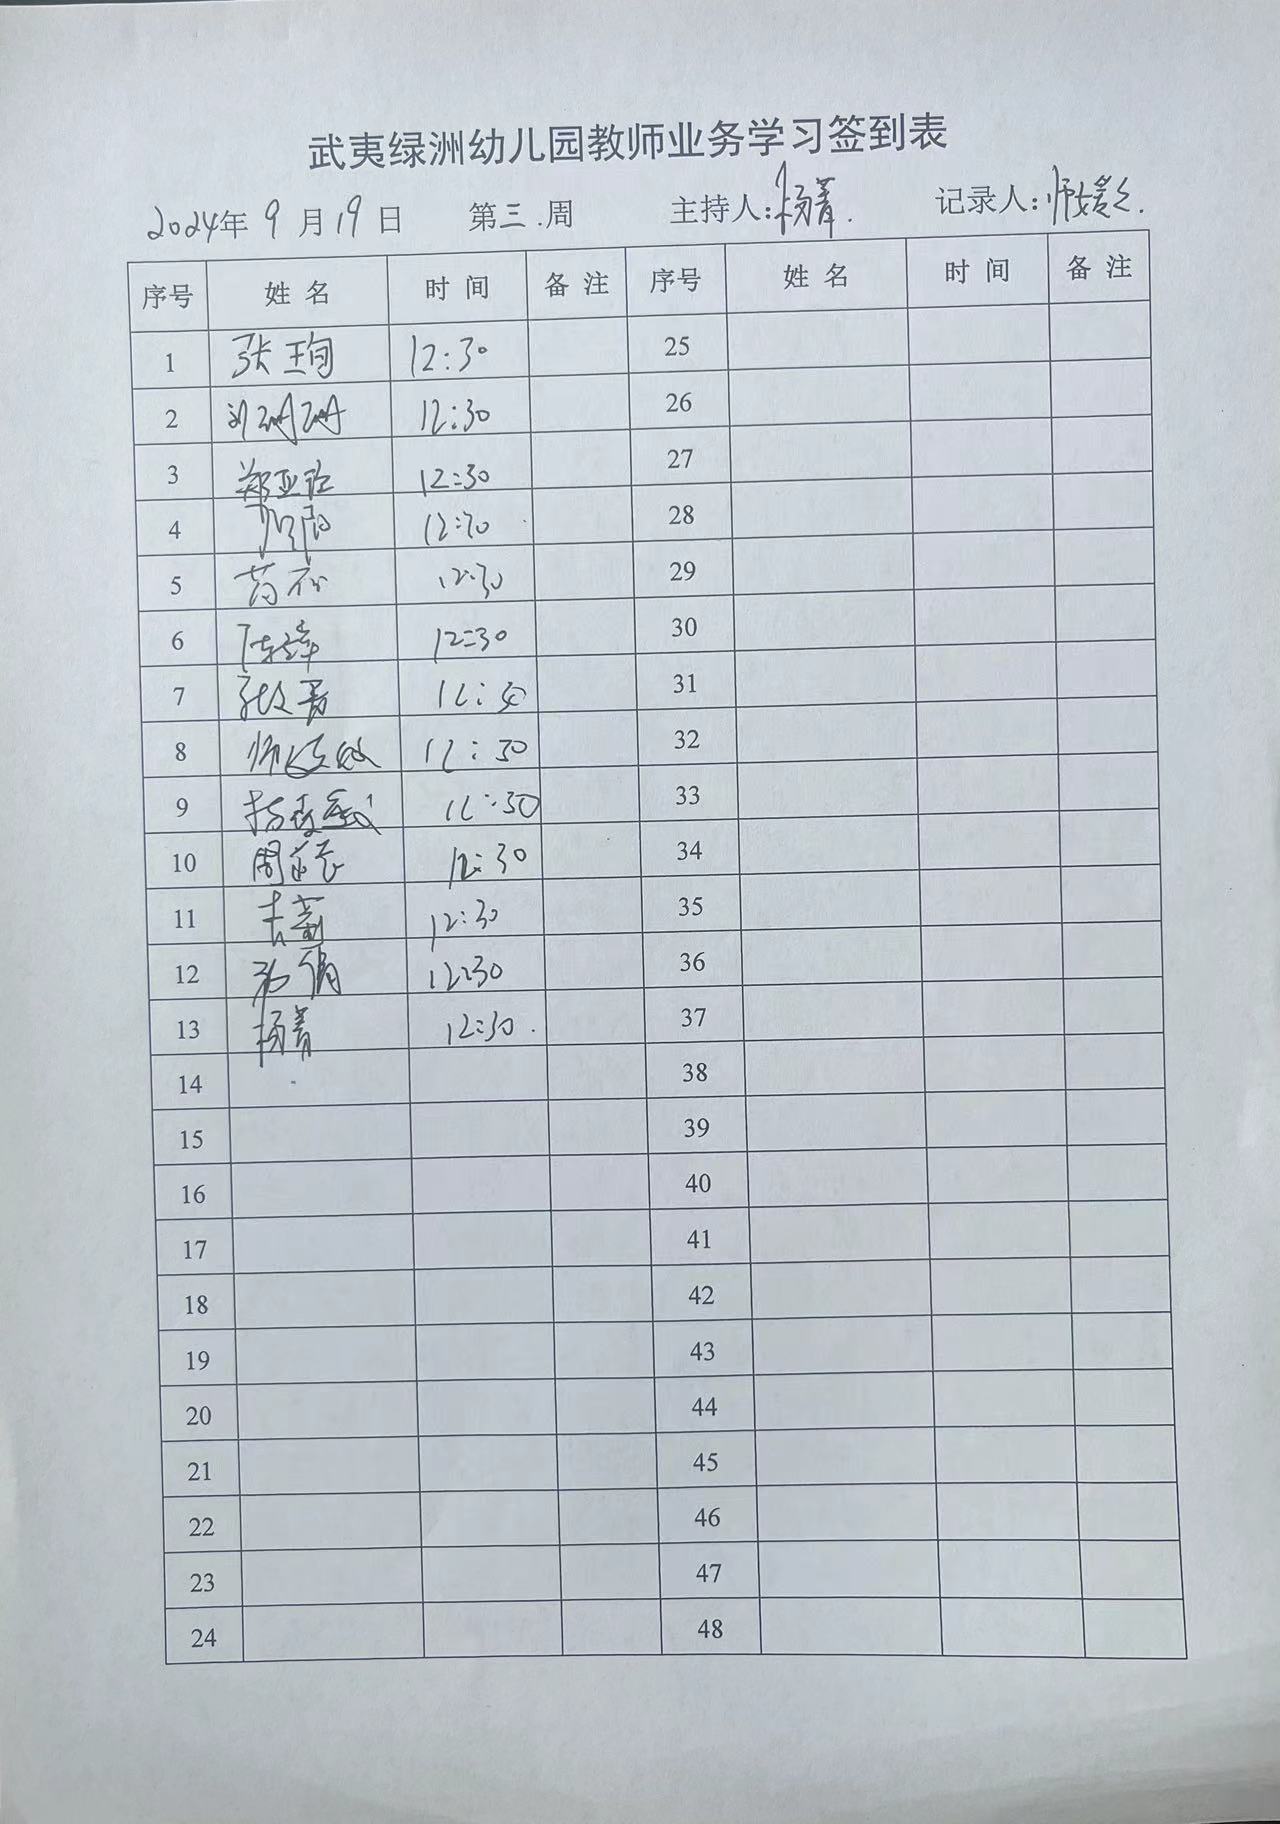 武夷绿洲幼儿园教师业务学习签到表
2024年 9 月 19 日 第三.周 主持人:杨菁. 记录人:师媛.
序号 姓名 时间 备注 序号 姓名 时间 备注
1 张珣 12:30 25
2 刘珊珊 12:30 26
3 郑亚 12:30 27
4 12:30 28
5 12:30 29
6 陈 12:30 30
7 12:30 31
8 师 12:30 32
9 杨 12:30 33
10 周 12:30 34
11 12:30 35
12 孙倩 12:30 36
13 杨菁 12:30. 37
14 38
15 39
16 40
17 41
18 42
19 43
20 44
21 45
22 46
23 47
24 48